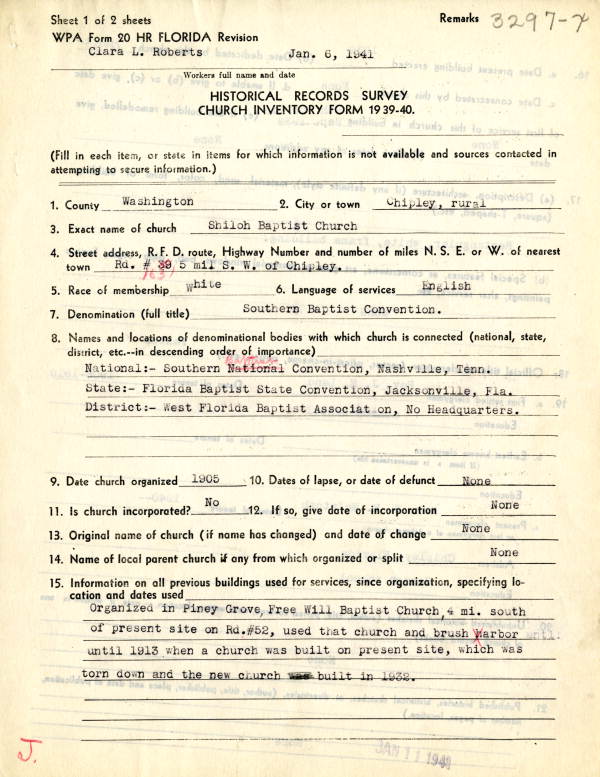 Sheet 1 of 2 sheets
Remarks 3297-7
WPA Form 20 HR FLORIDA Revision
Clara L. Roberts Jan. 6, 1941
Workers full name and date
HISTORICAL RECORDS SURVEY
CHURCH INVENTORY FORM 1939-40.
(Fill in each item, or state in items for which information is not available and sources contacted in
attempting to secure information.)
1. County Washington 2. City or town Chipley, rural
3. Exact name of church Shiloh Baptist Church
4. Street address, R. F. D. route, Highway Number and number of miles N. S. E. or W. of nearest
town Rd. # 39 5 mil S. W. of Chipley.
5. Race of membership White 6. Language of services English
7. Denomination (full title) Southern Baptist Convention.
8. Names and locations of denominational bodies with which church is connected (national, state,
district, etc.--in descending order of importance)
Baptist
National:- Southern National Convention, Nashville, Tenn.
State:- Florida Baptist State Convention, Jacksonville, Fla.
District:- West Florida Baptist Association, No Headquarters.
9. Date church organized 1905 10. Dates of lapse, or date of defunct None
11. Is church incorporated? No 12. If so, give date of incorporation None
13. Original name of church (if name has changed) and date of change None
14. Name of local parent church if any from which organized or split None
15. Information on all previous buildings used for services, since organization, specifying lo-
cation and dates used
Organized in Piney Grove, Free Will Baptist Church, 4 mi. south
of present site on Rd.#52, used that church and brush Harbor until
until 1913 when a church was built on present site, which was
torn down and the new church was built in 1932.
J.
JAN 11 1941